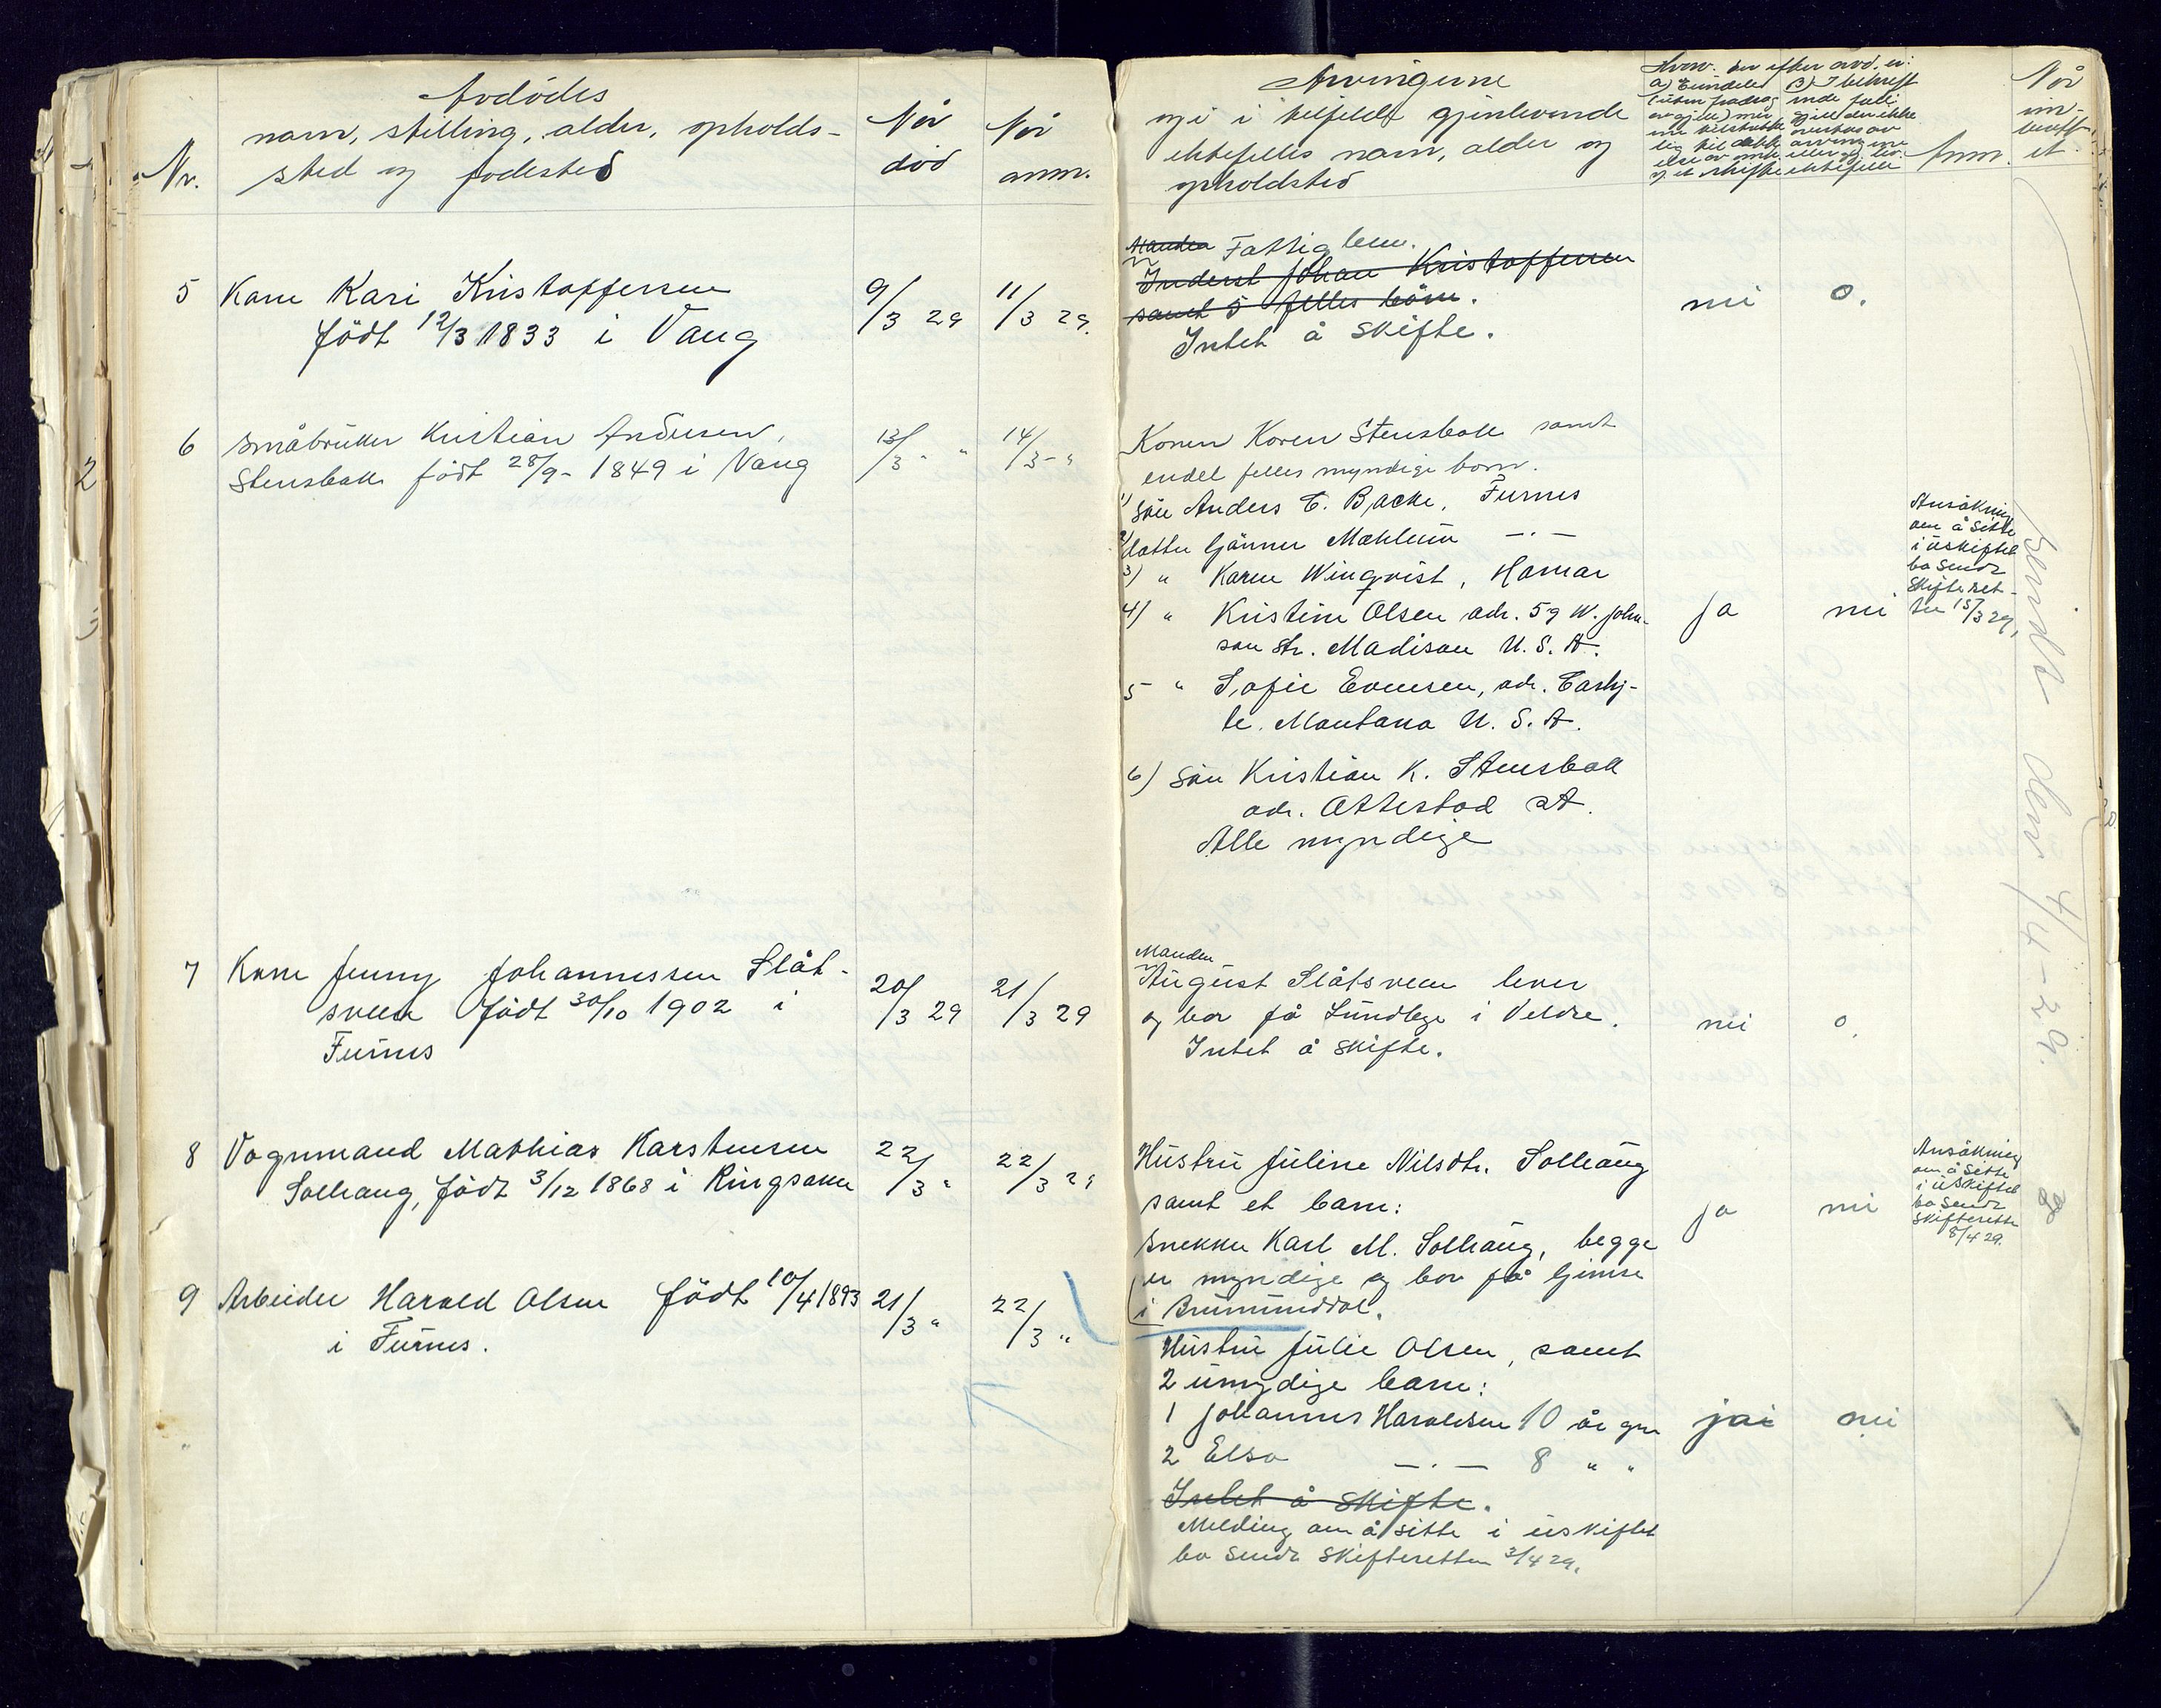 Avdødes
navn, stilling, alder, opholds-
sted og fødested
Nr.
Når
død
Når
anm.
5 Kone Kari Kristoffersen
født 12/3 1833 i Vang
9/3 29
11/3 29.
6 Småbruker Kristian Andersen,
Stensbakk født 28/9 - 1849 i Vang
13/3 - "
14/3 - "
7 Kone Jenny Johannessen Slåt-
sveen født 30/10 1902 i
Furnes
20/3 29
21/3 29
8 Vognmand Mathias Karstensen
Solhaug, født 3/12 1868 i Ringsaker
22/3 "
22/3 29
9 Arbeider Harald Olsen født 10/4 1893
i Furnes.
21/3 "
22/3 "
2
Arvingerne
og i tilfelde gjenlevende
ektefelles navn, alder og
opholdsted
Hvorv. den efter avd. er:
Anm.
Når
inn-
berett-
et
Manden Fattiglem.
Inderst Johan Kristoffersen
samt 5 felles børn.
Intet å skifte.
nei
0.
Konen Karen Stensbakk samt
endel felles myndige børn.
1) søn Anders C. Backe, Furnes
2) datter Gjønner Mæhlum -.-
3) " Karen Winqvist, Hamar
4) " Kristine Olsen adr. 59 W. John-
son str. Madison U. S. A.
5 " Sofie Evensen, adr.
Montana U. S. A.
6) Søn Kristian K. Stensbakk
adr. Ottestad st.
Alle myndige
ja
nei
Ansøkning
om å sitte
i uskiftet
bo sendt
skifteret-
ten 15/3 29.
Manden
August Slåtsveen lever
og bor på Lundbge i Veldre.
Intet å skifte.
nei
0.
Hustru Juline Nilsdtr. Solhaug
samt et barn:
snekker Karl M. Solhaug, begge
er myndige og bor på Gjemse
i Brumunddal.
ja
nei
Ansøkning
om å sitte
i uskiftet
bo sendt
skifteretten
8/4 29.
Hustru Julie Olsen, samt
2 umydige barn:
1 Johannes Haraldsen 10 år gm
2 Elsa -.- 8 " "
Intet å skifte.
Melding om å sitte i uskiftet
bo sendt skifteretten 3/4 29.
jai
nei
Sendt den 4/4 - 29.